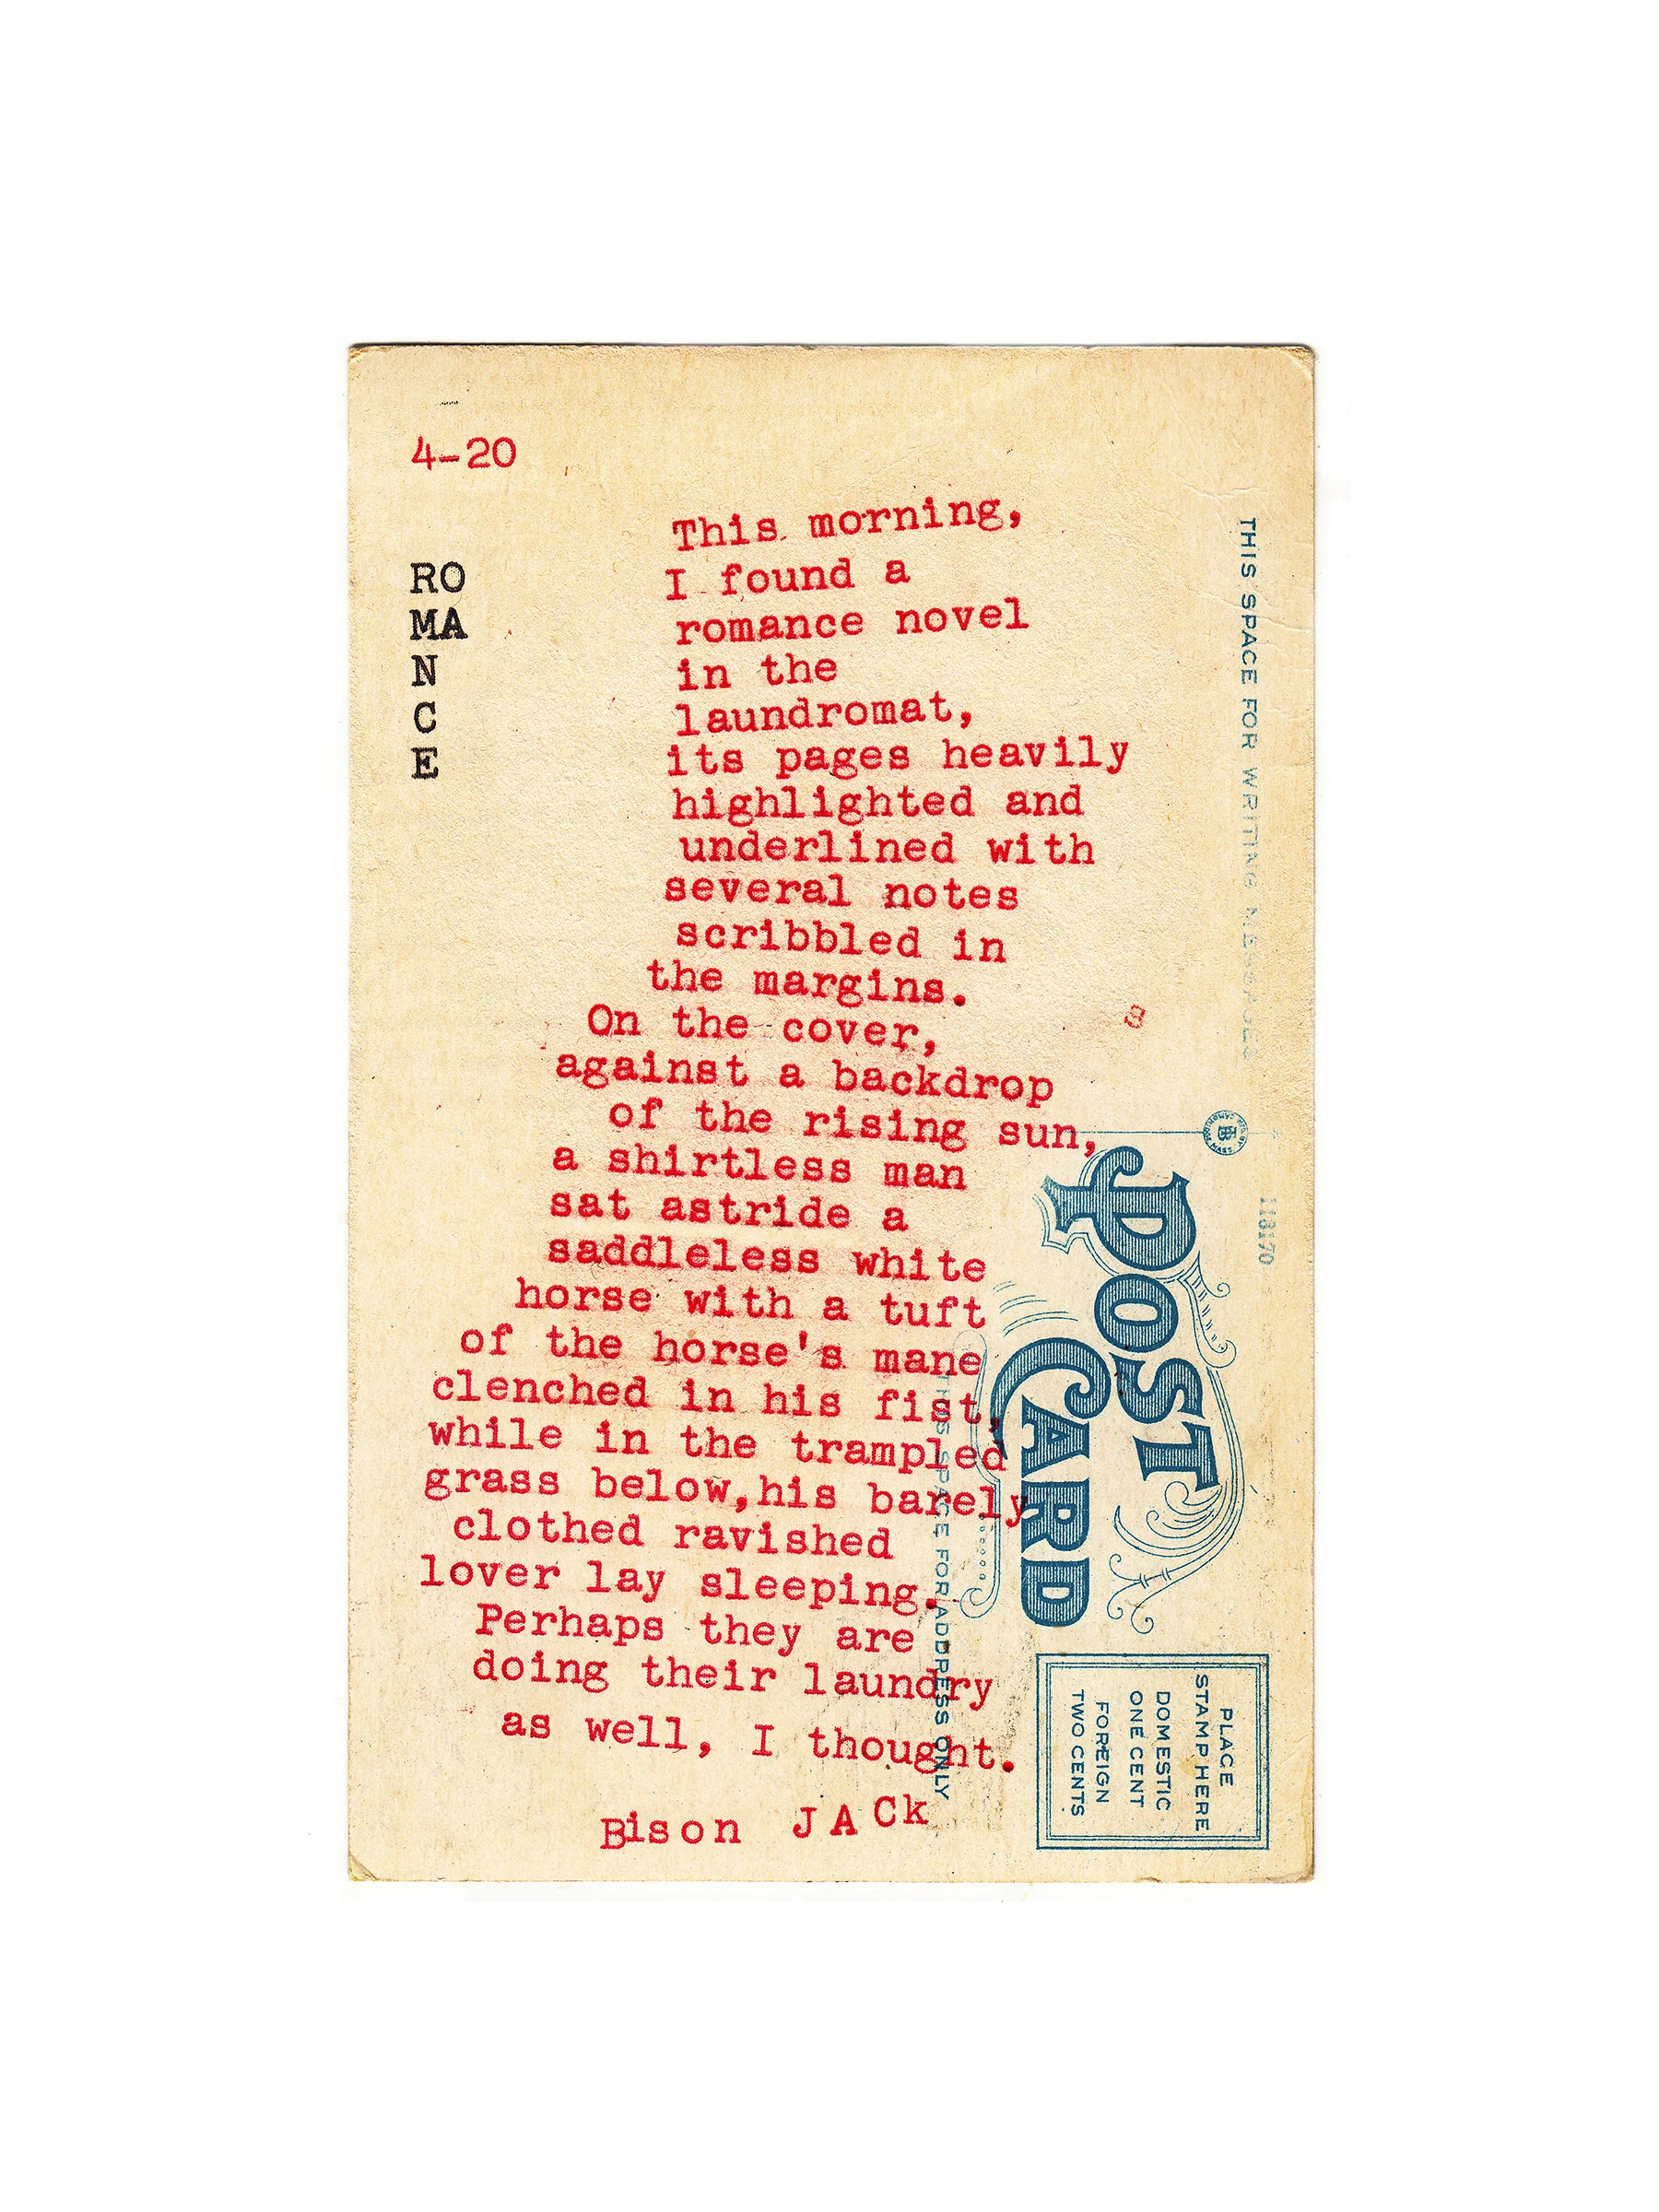 4-20
RO
MA
N
C
E
This morning,
I found a
romance novel
in the
laundromat,
its pages heavily
highlighted and
underlined with
several notes
scribbled in
the margins.
On the cover,
against a backdrop
of the rising sun,
a shirtless man
sat astride a
saddleless white
horse with a tuft
of the horse's mane
clenched in his fist,
while in the trampled
grass below,his barely
clothed ravished
lover lay sleeping.
Perhaps they are
doing their laundry
as well, I thought.
Bison JACk
s
THIS SPACE FOR WRITING MESSAGES
113170
POST
CARD
THIS SPACE FOR ADDRESS ONLY
PLACE
STAMP HERE
DOMESTIC
ONE CENT
FOREIGN
TWO CENTS